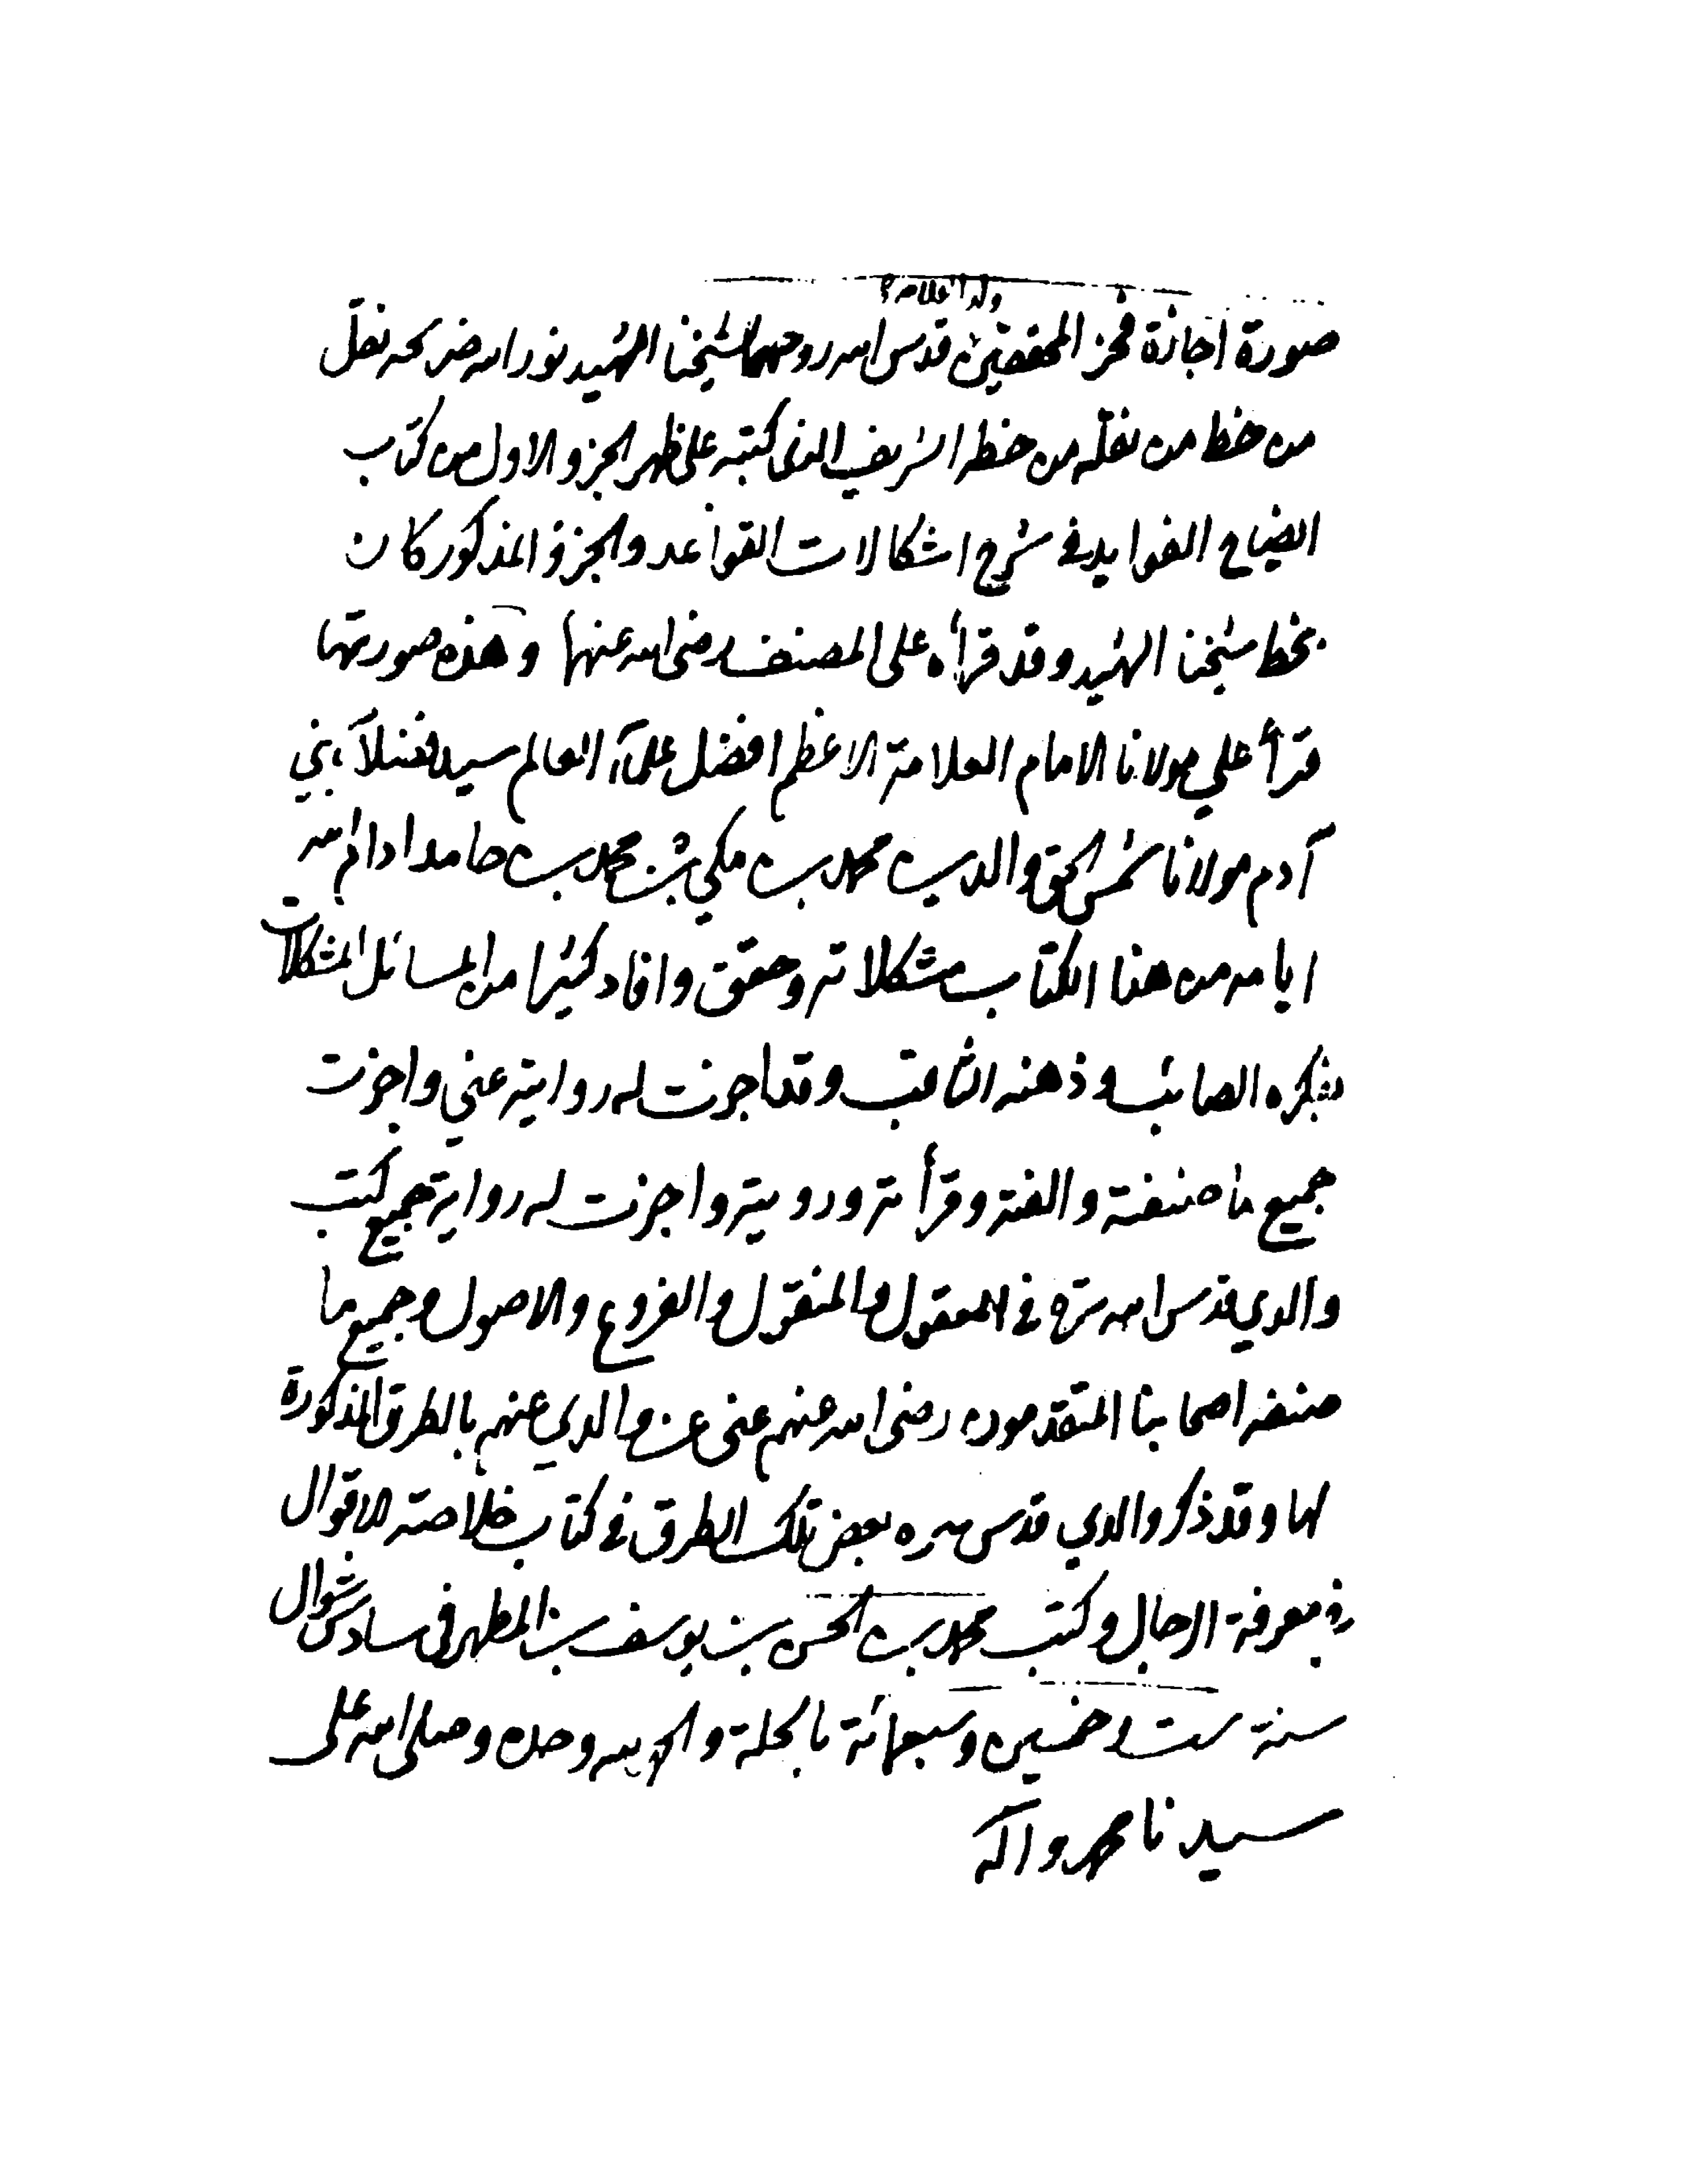 ولد العلامة
صورة اجازة فخر المحققين قدس الله روحهما لشيخنا الشهيد نور الله ضريحه نقل
من خط من نقله من خطه الشريف الذي كتبه على ظهر الجزو الاول من كتاب
ايضاح الفوايد في شرح اشكالات القواعد والجزو المذكور كان
بخط شيخنا الشهيد وقد قرأه على المصنف رضى الله عنهما وهذه صورتها
قرأ علي مولانا الامام العلامة الاعظم افضل علمآء العالم سيد فضلآء بني
آدم مولانا شمس الحق والدين محمد بن مكي بن محمد بن حامد ادام الله
ايامه من هذا الكتاب مشكلاته وحقق وافاد كثيرا من المسائل المشكلات
بفكره الصائب وذهنه الثاقب وقد اجزت له روايته عني واجزت
جميع ما صنفته والفته وقرأته ورويته واجزت له رواية جميع كتب
والدي قدس الله سره في المعقول والمنقول والفروع والاصول وجميع ما
صنفه اصحابنا المتقدمون رضى الله عنهم عنى عن والدي عنهم بالطرق المذكورة
لها وقد ذكر والدي قدس سره بعض تلك الطرق في كتاب خلاصة الاقوال
في معرفة الرجال وكتب محمد بن الحسن بن يوسف بن المطهر في سادس شوال
سنة ست وخمسين وسبعمائة بالحلة والحمد لله وحده وصلى الله على
سيدنا محمد واله